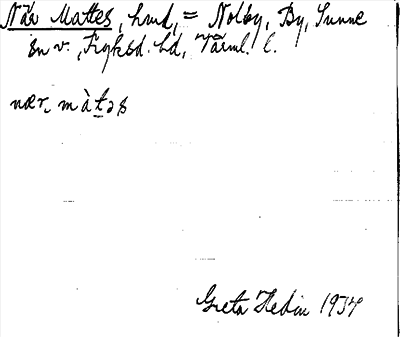 När Mattes, hmd, = Nolby, By, Sunne
sn v., Fryksd. hd, Värml. l.
nær, màtəs
Greta Hedin 1934